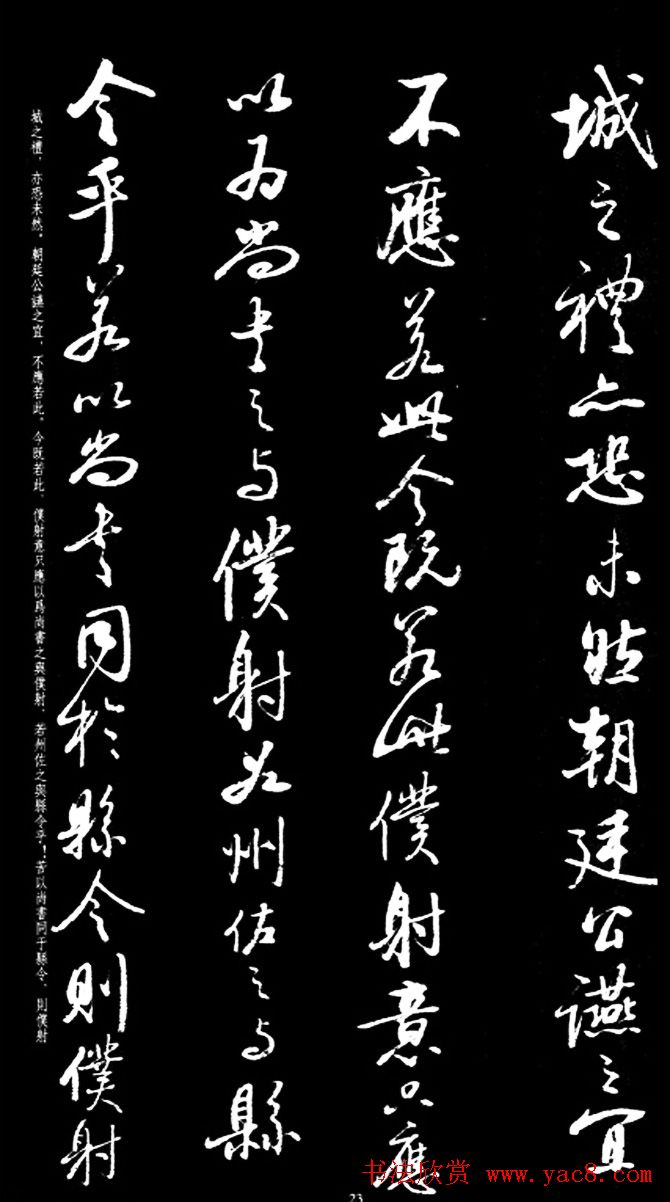 城之禮亦恐未然朝廷公讌之宜
不應若此今既若此僕射意只應
以為尚書之與僕射若州佐之與縣
令乎若以尚書同於縣令則僕射
城之禮，亦恐未然。朝廷公讌之宜，不應若此。今既若此，僕射意只應以爲尚書之與僕射，若州佐之與縣令乎！若以尚書同于縣令，則僕射
书法欣赏 www.yac8.com
23